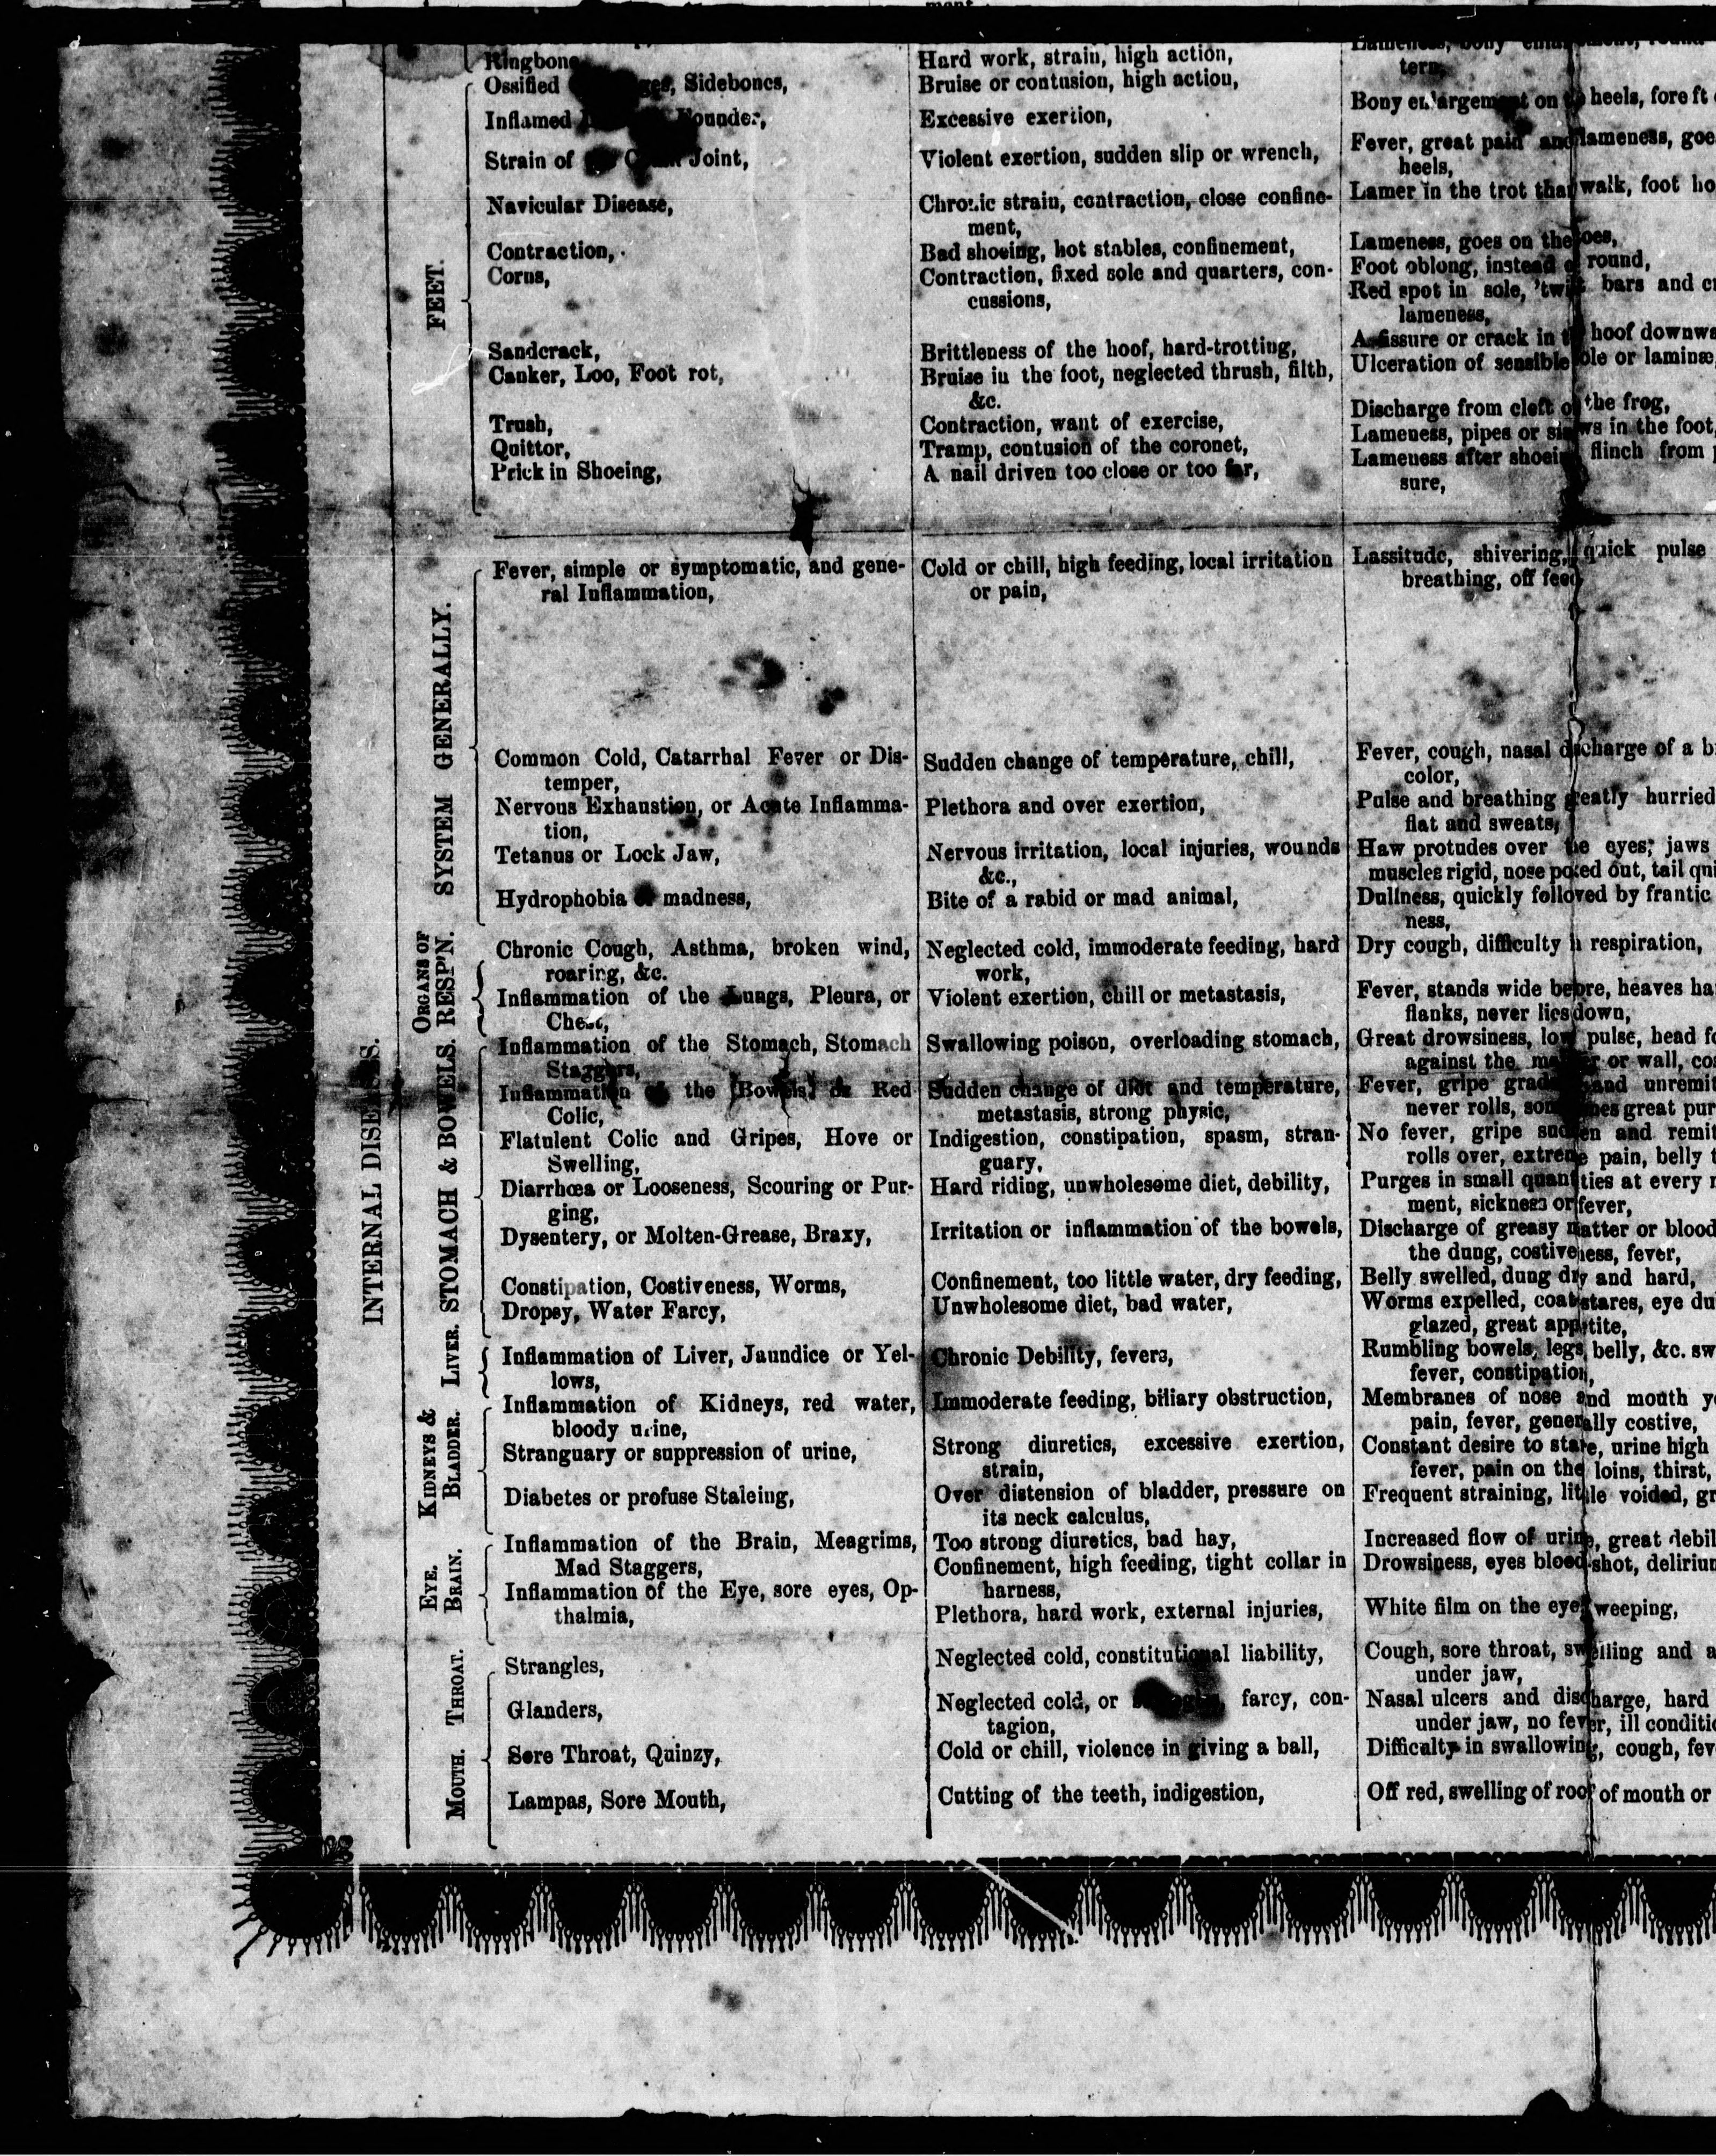 FEET.
SYSTEM GENERALLY.
ORGANS OF
RESP'N.
INTERNAL DISEASES.
STOMACH & BOWELS.
LIVER.
KIDNEYS &
BLADDER.
EYE.
BRAIN.
THROAT.
MOUTH.
Ringbone
Ossified Sidebones,
Inflamed Founder,
Strain of Joint,
Navicular Disease,
Contraction,
Corns,
Sandcrack,
Canker, Loo, Foot rot,
Trush,
Quittor,
Prick in Shoeing,
Fever, simple or symptomatic, and gene-
ral Inflammation,
Common Cold, Catarrhal Fever or Dis-
temper,
Nervous Exhaustion, or Acute Inflamma-
tion,
Tetanus or Lock Jaw,
Hydrophobia or madness,
Chronic Cough, Asthma, broken wind,
roaring, &c.
Inflammation of the Lungs, Pleura, or
Chest,
Inflammation of the Stomach, Stomach
Staggers,
Inflammation of the [Bowels] & Red
Colic,
Flatulent Colic and Gripes, Hove or
Swelling,
Diarrhœa or Looseness, Scouring or Pur-
ging,
Dysentery, or Molten-Grease, Braxy,
Constipation, Costiveness, Worms,
Dropsy, Water Farcy,
Inflammation of Liver, Jaundice or Yel-
lows,
Inflammation of Kidneys, red water,
bloody urine,
Stranguary or suppression of urine,
Diabetes or profuse Staleing,
Inflammation of the Brain, Meagrims,
Mad Staggers,
Inflammation of the Eye, sore eyes, Op-
thalmia,
Strangles,
Glanders,
Sore Throat, Quinzy,
Lampas, Sore Mouth,
Hard work, strain, high action,
Bruise or contusion, high action,
Excessive exertion,
Violent exertion, sudden slip or wrench,
Chronic strain, contraction, close confine-
ment,
Bad shoeing, hot stables, confinement,
Contraction, fixed sole and quarters, con-
cussions,
Brittleness of the hoof, hard-trotting,
Bruise in the foot, neglected thrush, filth,
&c.
Contraction, want of exercise,
Tramp, contusion of the coronet,
A nail driven too close or too far,
Cold or chill, high feeding, local irritation
or pain,
Sudden change of temperature, chill,
Plethora and over exertion,
Nervous irritation, local injuries, wounds
&c.,
Bite of a rabid or mad animal,
Neglected cold, immoderate feeding, hard
work,
Violent exertion, chill or metastasis,
Swallowing poison, overloading stomach,
Sudden change of diet and temperature,
metastasis, strong physic,
Indigestion, constipation, spasm, stran-
guary,
Hard riding, unwholesome diet, debility,
Irritation or inflammation of the bowels,
Confinement, too little water, dry feeding,
Unwholesome diet, bad water,
Chronic Debility, fevers,
Immoderate feeding, biliary obstruction,
Strong diuretics, excessive exertion,
strain,
Over distension of bladder, pressure on
its neck calculus,
Too strong diuretics, bad hay,
Confinement, high feeding, tight collar in
harness,
Plethora, hard work, external injuries,
Neglected cold, constitutional liability,
Neglected cold, or farcy, con-
tagion,
Cold or chill, violence in giving a ball,
Cutting of the teeth, indigestion,
Lameness, bony
tern,
Bony enlargement on heels, fore ft
Fever, great pain and lameness, goe
heels,
Lamer in the trot than walk, foot ho
Lameness, goes on the toes,
Foot oblong, instead of round,
Red spot in sole, 'twixt bars and cr
lameness,
A fissure or crack in hoof downwa
Ulceration of sensible sole or laminæ,
Discharge from cleft of the frog,
Lameness, pipes or in the foot,
Lameness after shoeing flinch from
sure,
Lassitude, shivering, quick pulse
breathing, off feed
Fever, cough, nasal discharge of a b
color,
Pulse and breathing greatly hurried
flat and sweats,
Haw protudes over the eyes; jaws
muscles rigid, nose poked out, tail qui
Dullness, quickly followed by frantic
ness,
Dry cough, difficulty respiration,
Fever, stands wide before, heaves ha
flanks, never lies down,
Great drowsiness, low pulse, head fo
against the or wall, co
Fever, gripe and unremit
never rolls, sometimes great pur
No fever, gripe sudden and remit
rolls over, extreme pain, belly t
Purges in small quantities at every
ment, sickness or fever,
Discharge of greasy matter or blood
the dung, costiveness, fever,
Belly swelled, dung dry and hard,
Worms expelled, coat stares, eye du
glazed, great appetite,
Rumbling bowels, legs, belly, &c. sw
fever, constipation,
Membranes of nose and mouth ye
pain, fever, generally costive,
Constant desire to stale, urine high
fever, pain on the loins, thirst,
Frequent straining, little voided, gr
Increased flow of urine, great debil
Drowsiness, eyes blood-shot, delirium
White film on the eye, weeping,
Cough, sore throat, swelling and a
under jaw,
Nasal ulcers and discharge, hard
under jaw, no fever, ill conditio
Difficulty in swallowing, cough, fev
Off red, swelling of roof of mouth or